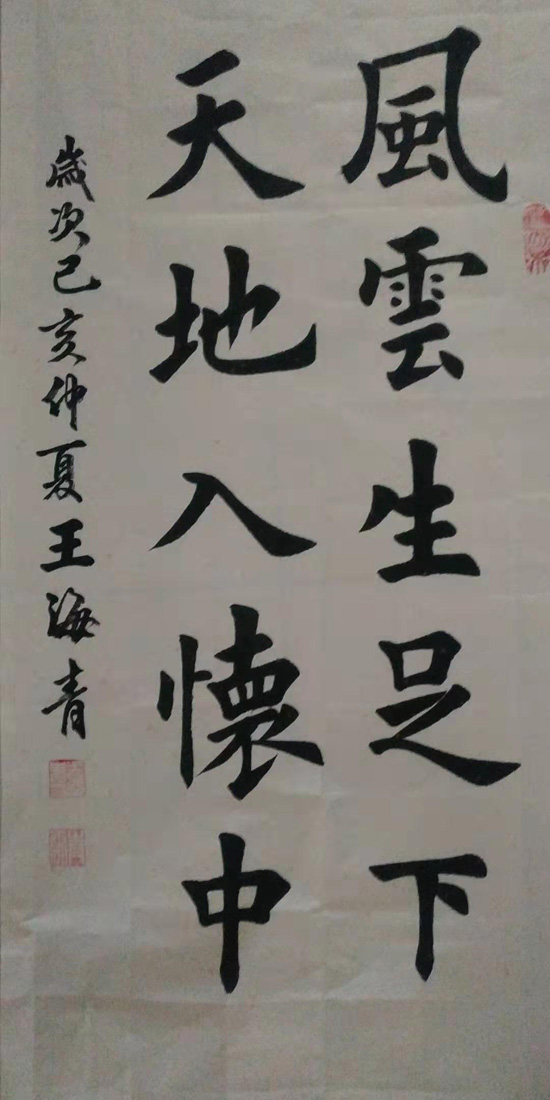 風雲生足下
天地入懷中
歲次己亥仲夏王海青